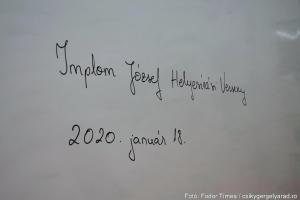 Implom József Helyesírási Verseny
2020. január 18.
Fotó: Fodor Timea | csikygergelyarad.ro